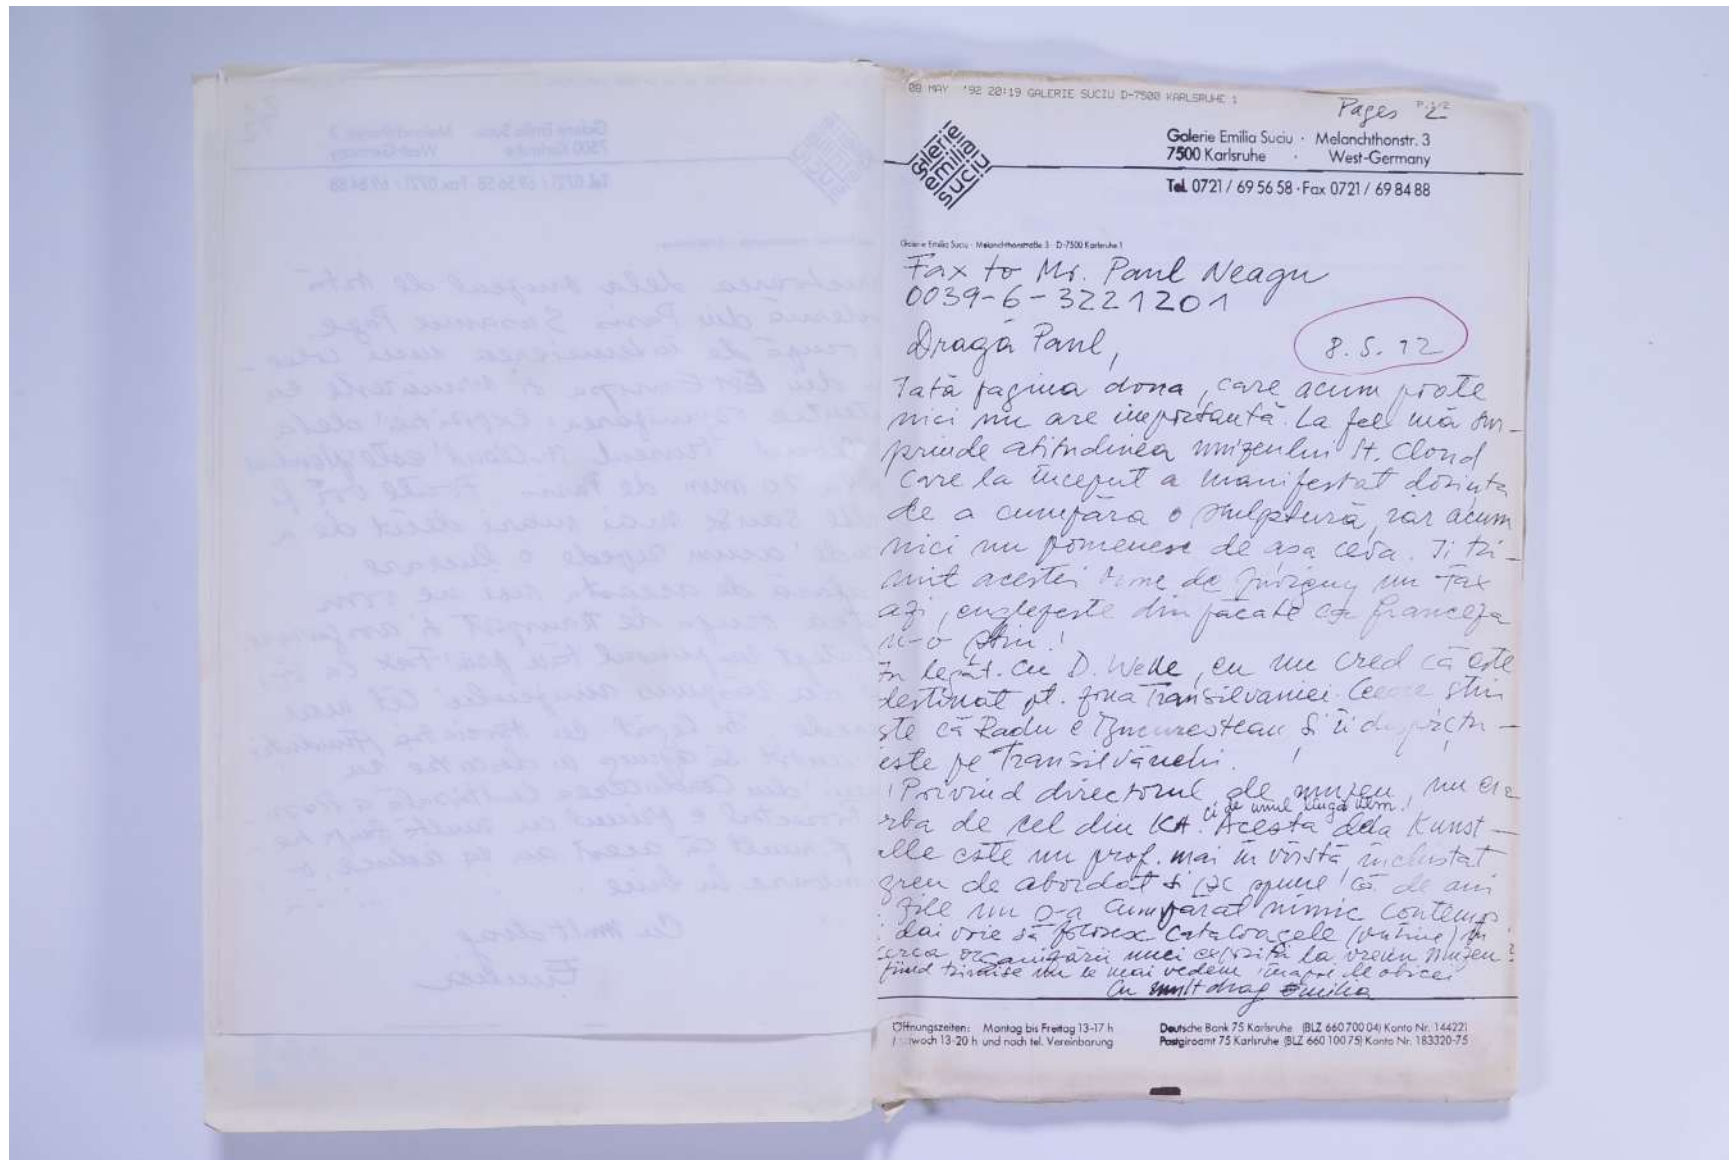 08 MAY '92 20:19 GALERIE SUCIU D-7500 KARLSRUHE 1
P.1/2
Pages 2
galerie emilia suciu
Galerie Emilia Suciu · Melanchthonstr. 3
7500 Karlsruhe · West-Germany
Tel. 0721 / 69 56 58 · Fax 0721 / 69 84 88
Galerie Emilia Suciu · Melanchthonstraße 3 · D-7500 Karlsruhe 1
Fax to Mr. Paul Neagu
0039-6-3221201
Dragă Paul,
8.5.92
Iată pagina doua, care acum poate
nici nu are importanță. La fel mă sur-
prinde atitudinea muzeului St. Cloud
care la început a manifestat dorința
de a cumpăra o sculptură, iar acum
nici nu pomenesc de așa ceva. Ii tri-
mit acestei de un Fax
azi, englezește din păcate că franceza
n-o știu!
In legăt. cu D. Welle, eu nu cred că este
destinat pt. zona Transilvaniei. Ceeace știu
ste că Radu e Bucureștean și ii
ește pe Transilvăneni.
Privind directorul de muzeu, nu era
rba de cel din KA. Acesta dela Kunst-
ci de unul lingă
lle este un prof. mai în vîrstă, incrustat
greu de abordat și se spune că de ani
zile nu s-a cumpărat nimic contemp.
dai voie să folosesc cataloagele (puține) în
erca organizării unei expoziții la vreun muzeu?
fiind trimise nu le mai vedem înapoi de obicei
Cu mult drag Emilia
Öffnungszeiten: Montag bis Freitag 13-17 h
woch 13-20 h und nach tel. Vereinbarung
Deutsche Bank 75 Karlsruhe (BLZ 660 700 04) Konto Nr. 144221
Postgiroamt 75 Karlsruhe (BLZ 660 100 75) Konto Nr. 183320-75